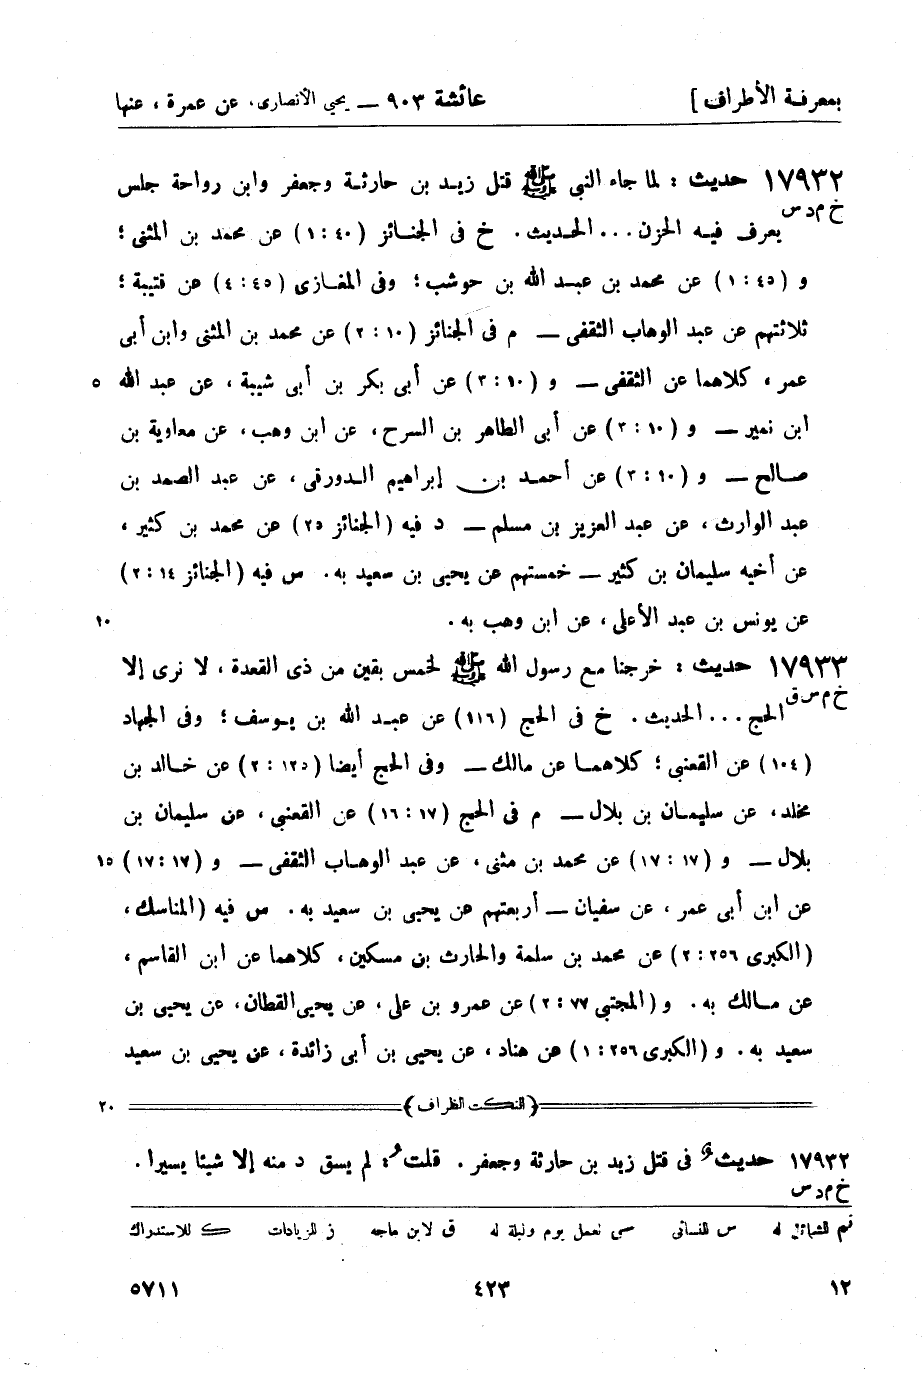 بمعرفة الأطراف ] عائشة ٩٠٣ — يحيى الانصارى، عن عمرة ، عنها
١٧٩٣٢ حديث : لما جاء النبي ﷺ قتل زيد بن حارثة وجعفر وابن رواحة جلس
خ م د س يعرف فيه الحزن ... الحديث . خ فى الجنائز (٤٠ : ١) عن محمد بن المثنى ؛
و (٤٥ : ١) عن محمد بن عبد الله بن حوشب ؛ وفى المغازى (٤٥ : ٤) عن قتيبة ؛
ثلاثتهم عن عبد الوهاب الثقفى — م فى الجنائز (١٠ : ٢) عن محمد بن المثنى وابن أبى
عمر ، كلاهما عن الثقفى — و (١٠ : ٣) عن أبى بكر بن أبى شيبة ، عن عبد الله ٥
ابن نمير — و (١٠ : ٣) عن أبى الطاهر بن السرح ، عن ابن وهب ، عن معاوية بن
صالح — و (١٠ : ٣) عن أحمد بن إبراهيم الدورقى ، عن عبد الصمد بن
عبد الوارث ، عن عبد العزيز بن مسلم — د فيه (الجنائز ٢٥) عن محمد بن كثير ،
عن أخيه سليمان بن كثير — خمستهم عن يحيى بن سعيد به . س فيه (الجنائز ١٤ : ٢)
عن يونس بن عبد الأعلى ، عن ابن وهب به . ١٠
١٧٩٣٣ حديث : خرجنا مع رسول الله ﷺ لخمس بقين من ذى القعدة ، لا نرى إلا
خ م س ق الحج ... الحديث . خ فى الحج (١١٦) عن عبد الله بن يوسف ؛ وفى الجهاد
(١٠٤) عن القعنبى ؛ كلاهما عن مالك — وفى الحج أيضا (١٢٥ : ٢) عن خالد بن
مخلد ، عن سليمان بن بلال — م فى الحج (١٧ : ١٦) عن القعنبى ، عن سليمان بن
بلال — و (١٧ : ١٧) عن محمد بن مثنى ، عن عبد الوهاب الثقفى — و (١٧ : ١٧) ١٥
عن ابن أبى عمر ، عن سفيان — أربعتهم عن يحيى بن سعيد به . س فيه (المناسك ،
(الكبرى ٢٥٦ : ٢) عن محمد بن سلمة والحارث بن مسكين ، كلاهما عن ابن القاسم ،
عن مالك به . و (المجتبى ٧٧ : ٢) عن عمرو بن على ، عن يحيى القطان ، عن يحيى بن
سعيد به . و (الكبرى ٢٥٦ : ١) عن هناد ، عن يحيى بن أبى زائدة ، عن يحيى بن سعيد
(النكت الظراف) ٢٠
١٧٩٣٢ حديث فى قتل زيد بن حارثة وجعفر . قلت : لم يسق د منه إلا شيئا يسيرا .
خ م د س
تم للشمائل له س للنسائى سى لعمل يوم وليلة له ق لابن ماجه ز للزيادات ك للاستدراك
١٢ ٤٢٣ ٥٧١١